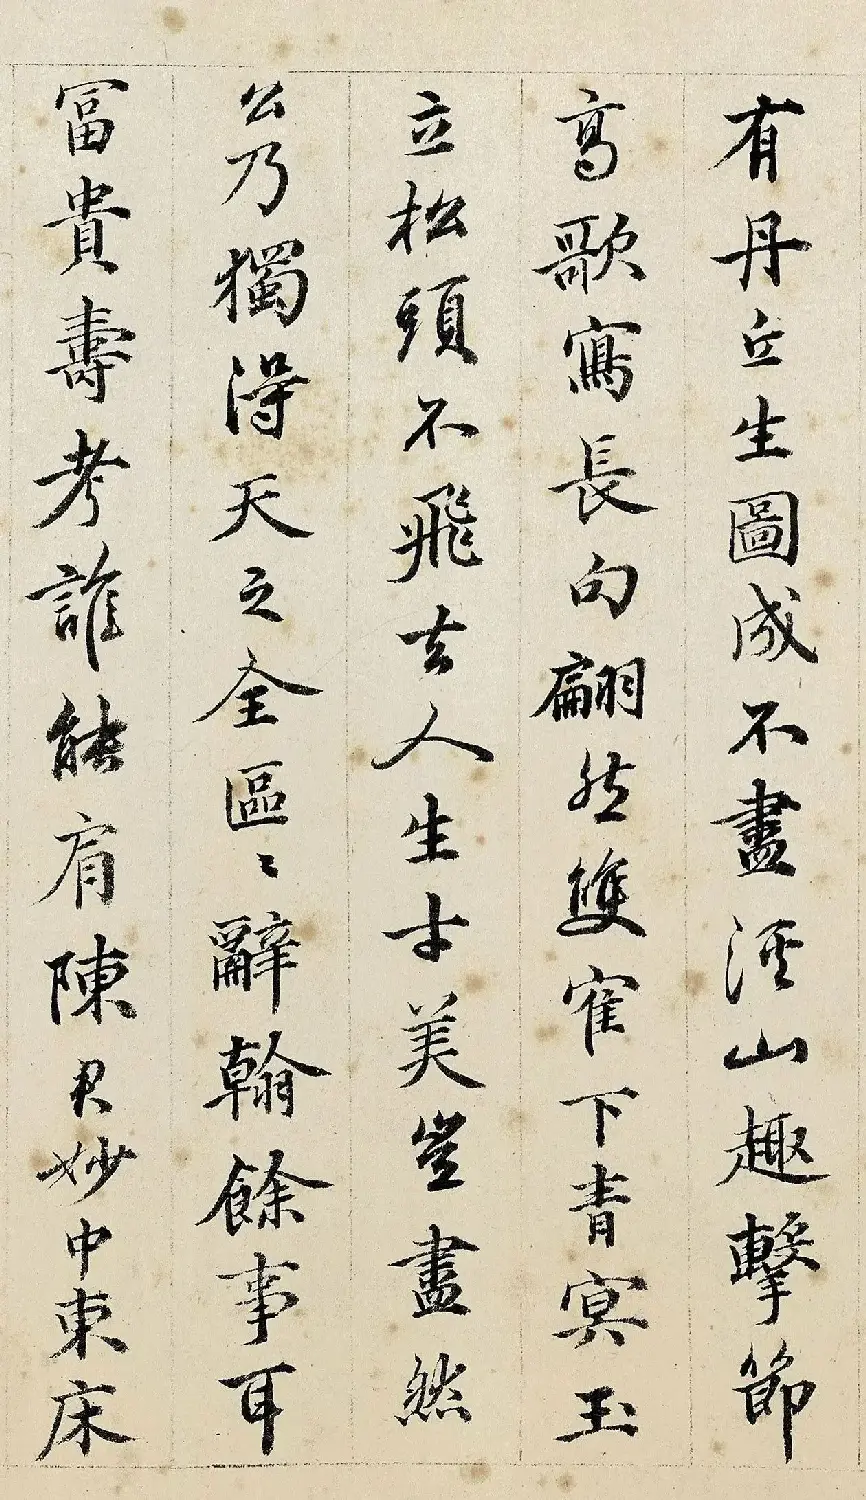 有丹丘生圖成不盡溪山趣擊節
高歌寫長句翩然雙寉下青冥玉
立松頭不飛去人生才美豈盡然
公乃獨得天之全區〻辭翰餘事耳
富貴壽考誰能肩陳君妙中東床